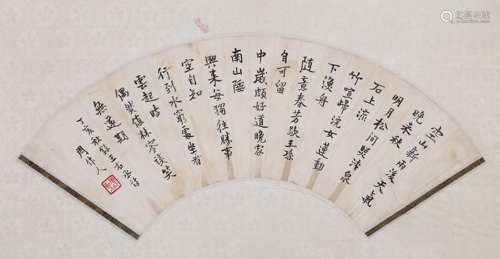 空山新雨後天氣
晚来秋
明月松間照清泉
石上流
竹喧歸浣女蓮動
下漁舟
随意春芳歇王孫
自可留
中歲頗好道晚家
南山陲
興来每獨往勝事
空自知
行到水窮處坐看
雲起時
偶然值林叟談笑
無還期
丁亥秋録王右丞詩
周作人